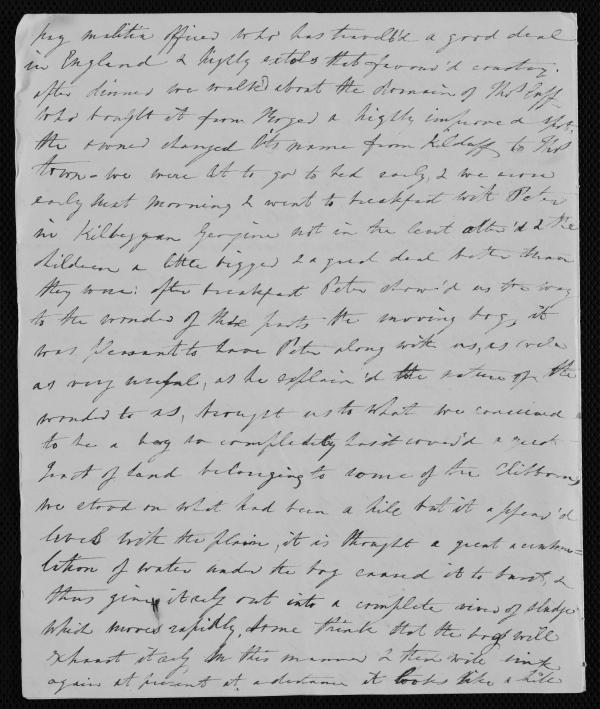 pay militia officer who has travell'd a good deal
in England & highly extols that favour'd country.
after dinner we walk'd about the domain of Thos Cuff
who bought it from Hodges a highly improved spot,
the owner changed its name from Kilduff to
town - we were let to go to bed early, & we arose
early next morning & went to breakfast with Peter
in Kilbeggan Georgine not in the least alter'd & the
children a little bigger & a great deal better than
they were: after breakfast Peter show'd us the way
to the wonder of these parts the moving bog, it
was pleasant to have Peter along with us, as well
as very useful, as he explain'd the nature of the
wonder to us, brought us to what we conceived
to be a bog so completely has it cover'd a great
tract of land belonging to some of the Clibborns,
we stood on what had been a hill but it appear'd
level with the plain, it is thought a great accumu=
lation of water under the bog caused it to burst, &
thus give itself out into a complete river of sludge
which moves rapidly, some think that the bog will
exhaust itself in this manner & then will sink
again at present at a distance it looks like a hill